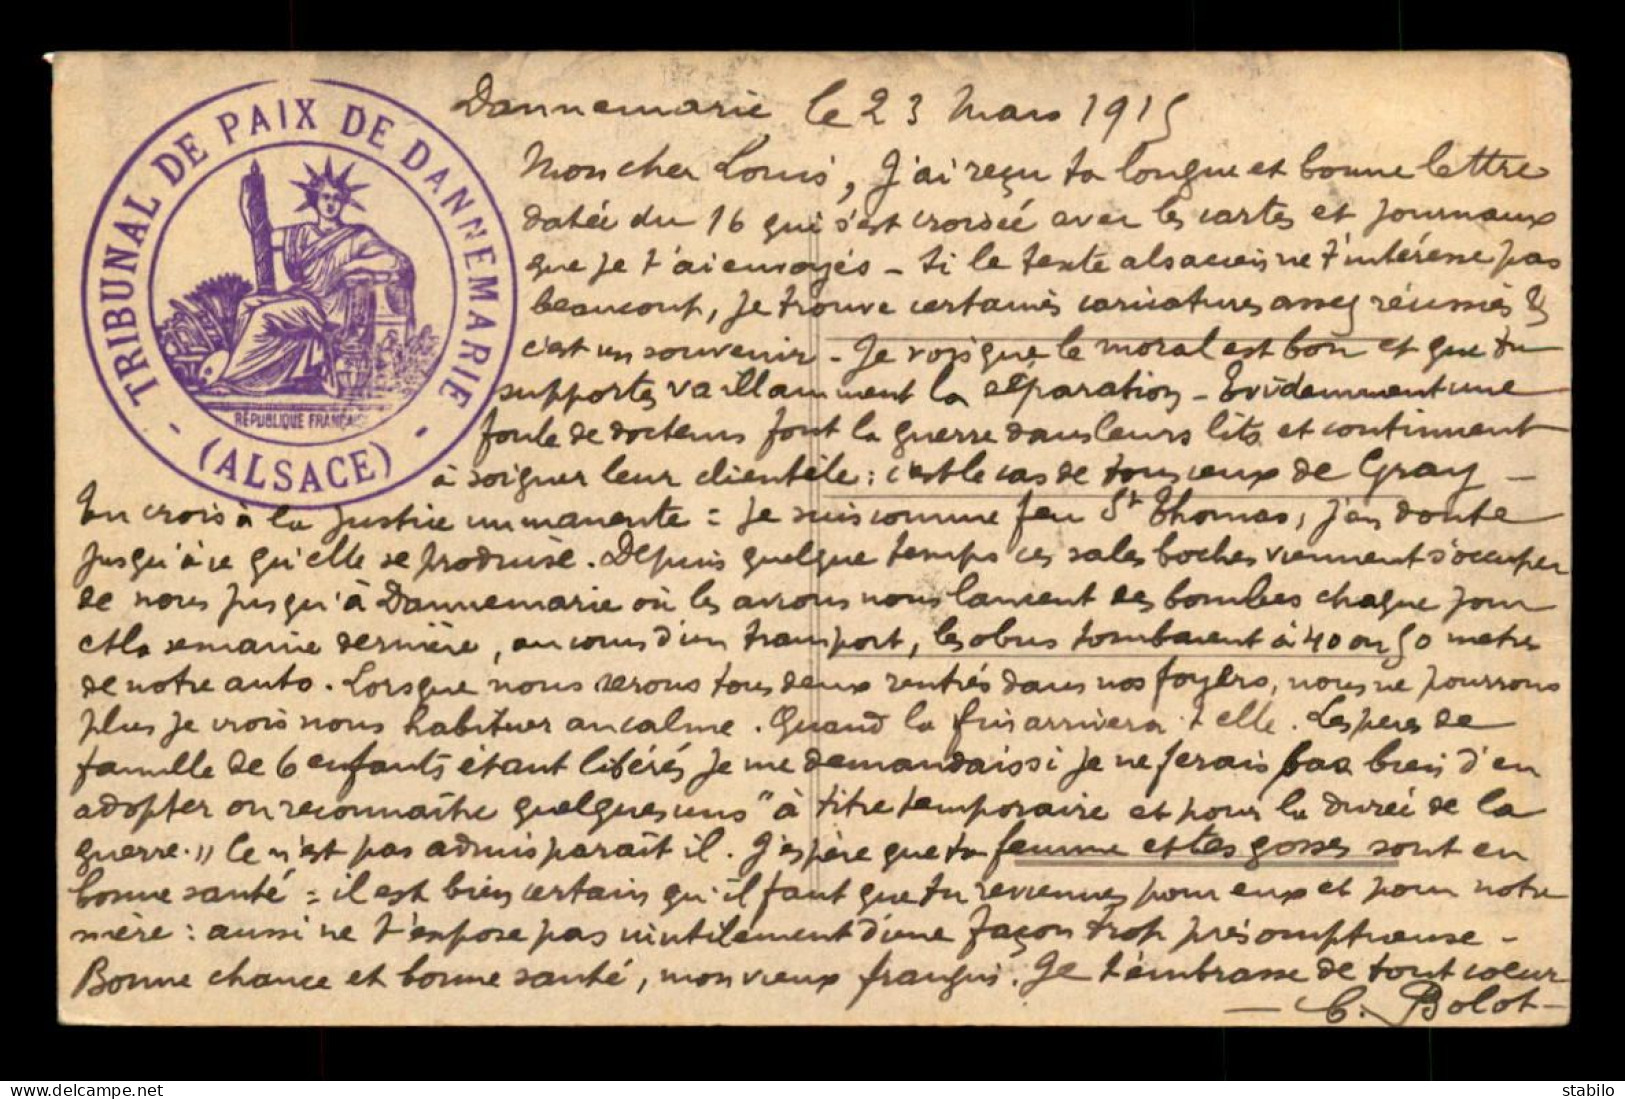 TRIBUNAL DE PAIX DE DANNEMARIE
- (ALSACE) -
RÉPUBLIQUE FRANÇAISE
Dannemarie le 23 Mars 1915
Mon cher Louis, J'ai reçu ta longue et bonne lettre
datée du 16 qui s'est croisée avec les cartes et journaux
que je t'ai envoyés - Si le texte alsacien ne t'intéresse pas
beaucoup, je trouve certaines caricatures assez réussies &
c'est un souvenir - Je vois que le moral est bon et que tu
supportes vaillamment la séparation - Evidemment une
foule de docteurs font la guerre dans leurs lits et continuent
à soigner leur clientèle : c'est le cas de tous ceux de Gray -
Tu crois à la justice immanente = je suis comme feu St Thomas, j'en doute
jusqu'à ce qu'elle se produise. Depuis quelque temps ces sales boches viennent s'occuper
de nous jusqu'à Dannemarie où les avions nous lancent des bombes chaque jour
et la semaine dernière, au cours d'un transport, les obus tombaient à 40 ou 50 metres
de notre auto. Lorsque nous serons tous deux rentrés dans nos foyers, nous ne pourrons
plus je crois nous habituer au calme. Quand la fin arrivera t elle. Les pères de
famille de 6 enfants étant libérés je me demandais si je ne ferais pas bien d'en
adopter ou reconnaître quelques uns "à titre temporaire et pour la durée de la
guerre." Ce n'est pas admis paraît il. J'espère que ta femme et tes gosses sont en
bonne santé = il est bien certain qu'il faut que tu reviennes pour eux et pour notre
mère : aussi ne t'expose pas inutilement d'une façon trop présomptueuse -
Bonne chance et bonne santé, mon vieux frangin. Je t'embrasse de tout coeur
- C. Bolot -
www.delcampe.net
stabilo